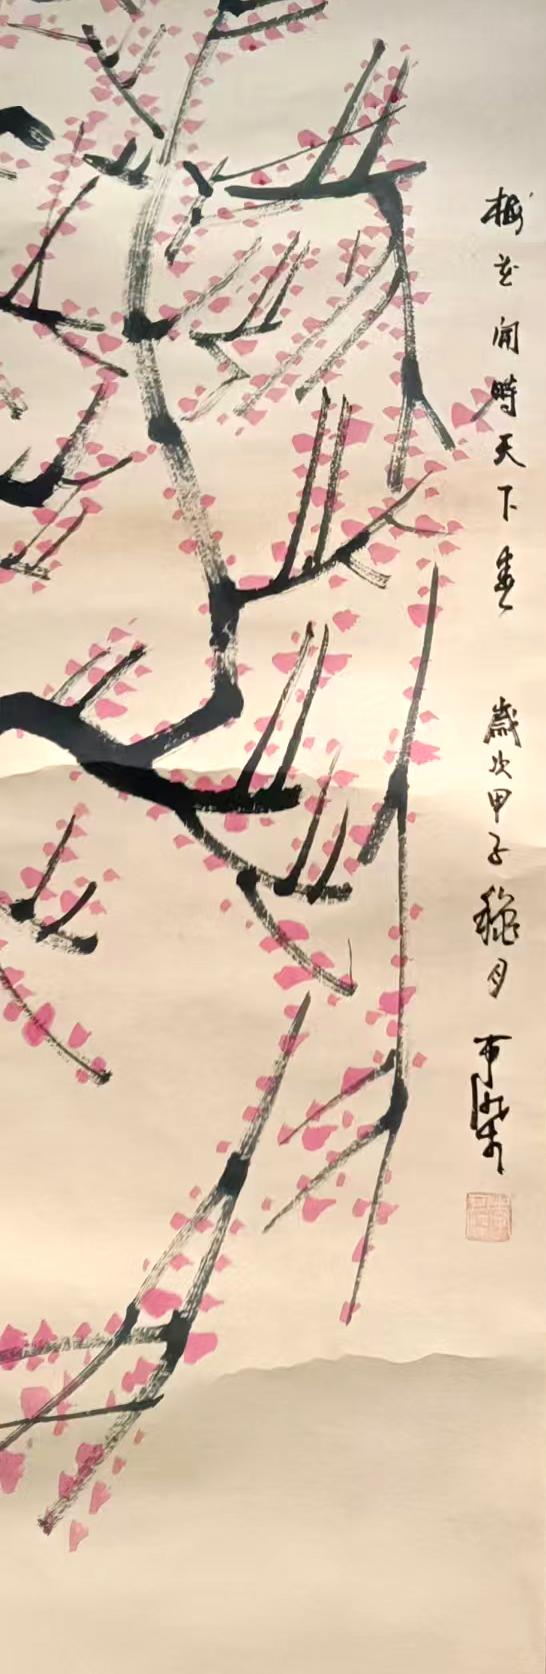 梅花開時天下春
歲次甲子穐月